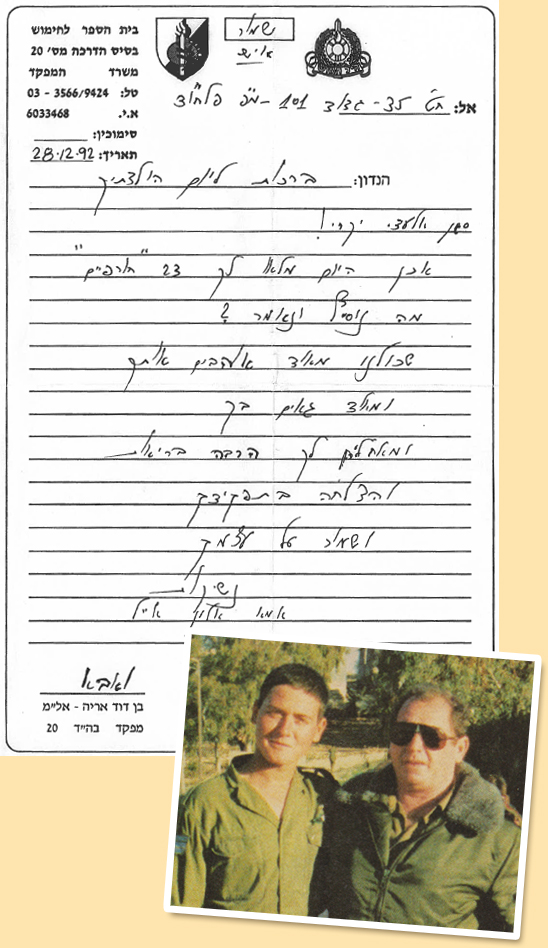 בית הספר לחימוש
בסיס הדרכה מס' 20
משרד המפקד
טל: 03 - 3566/9424
א.י. 6033468
סימוכין:
תאריך: 28.12.92
שמור
אישי
אל: חט' 35 - גדוד 101 - מ"פ פלחוד
הנדון: ברכות ליום הולדתך
סגן אלעזי יקר!
אכן היום מלאו לך 23 "חורפים"
מה נוסיף ונאמר?
שכולנו מאוד אוהבים אותך
ומאוד גאים בך
ומאחלים לך הרבה בריאות
והצלחה בתפקידך
ושמור על עצמך
נשיקות
אמא אלון אייל
ואבא
בן דוד אריה - אל"מ
מפקד בה"ד 20